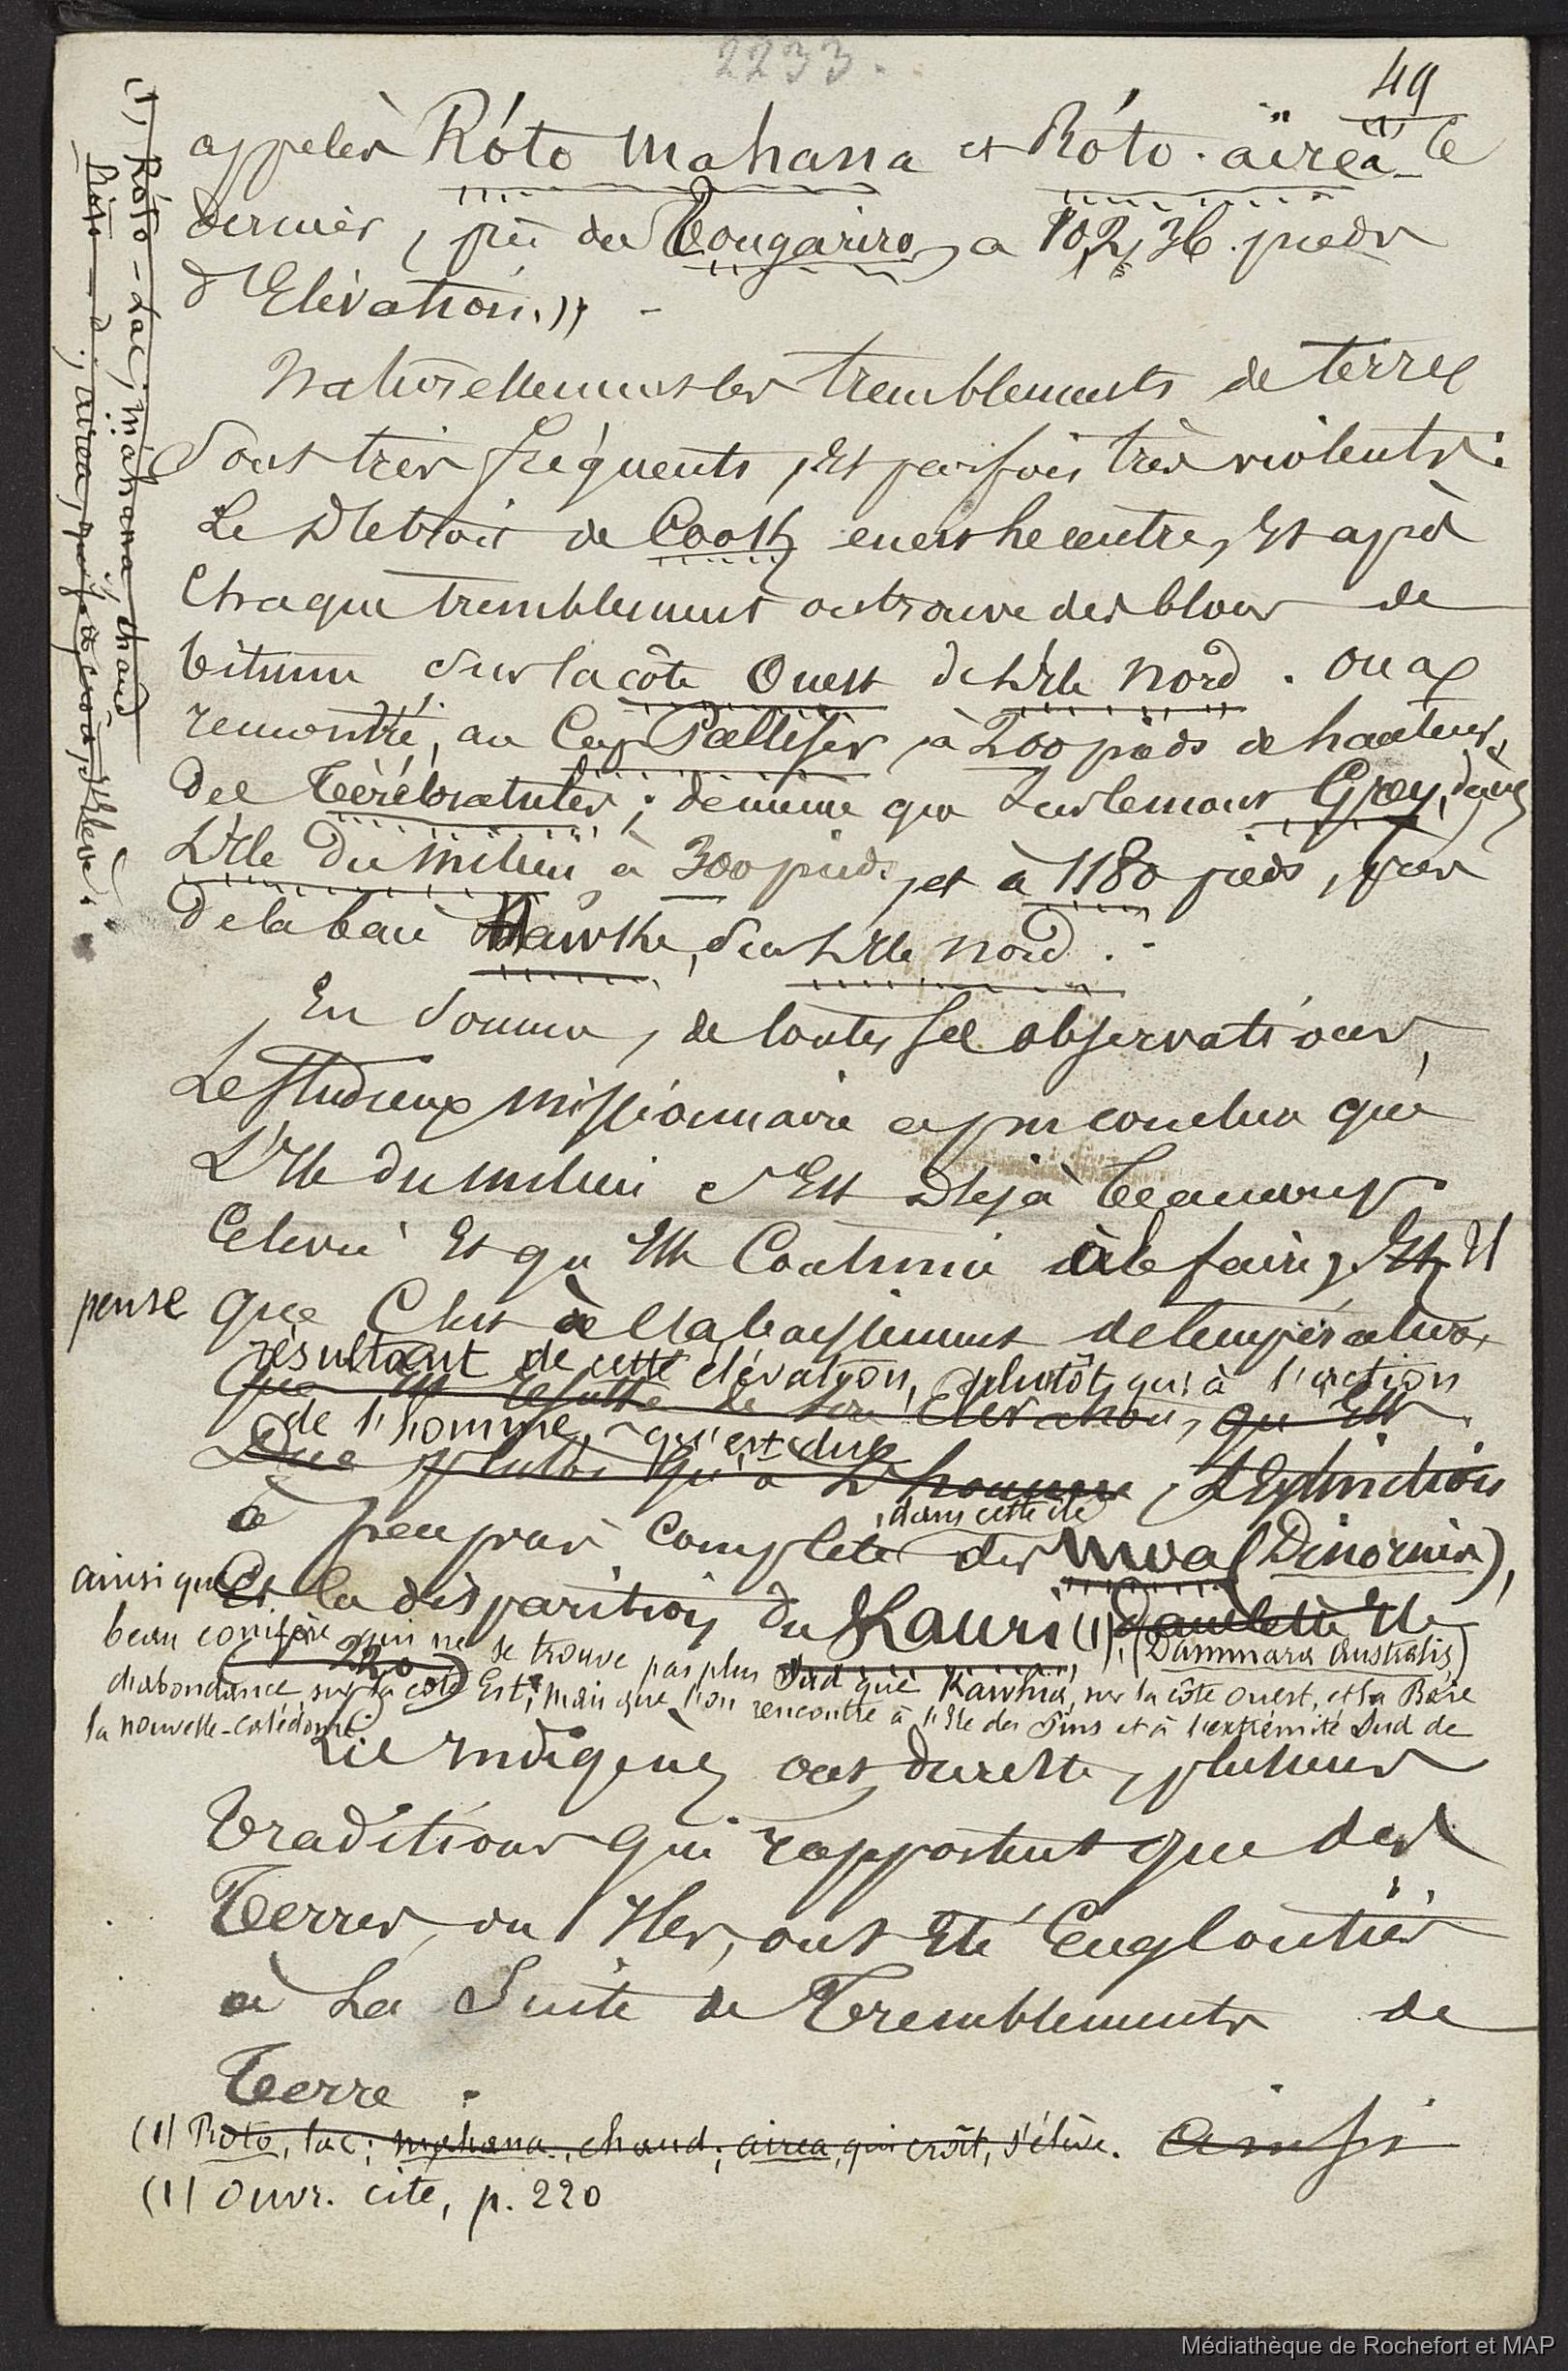 2233.
49
appelés Róto Mahana et Róto-äirea (1) le
dernier, près du Tongariro, a 10,236 pieds
d'Elévation.)) -
Naturellement les tremblements de terre
sont très fréquents, et parfois très violents:
Le Détroit de Cook en est le centre, Et après
Chaque tremblement on trouve des blocs de
bitume sur la côte Ouest de L'Ile Nord. on a
remontré, au Cap Palliser, à 200 pieds de hauteur,
des Térébratules; de même que sur le mont Grey, dans
L'Ile du milieu à 300 pieds, et à 1180 pieds, près
de la baie Hawke, sur L'Ile Nord. -
En somme, de toutes ses observations,
Le studieux missionnaire a pu conclure que
L'Ile du milieu s'Est Déjà beaucoup
Elevée Et qu'Elle Continue à le faire; Et Il
pense que C'est à l'abaissement de température,
résultant de cette élévation, plutôt qu'à l'action
que Elle résulte de son Elévation, qu'Est
de l'homme, qu'est due
Due plutôt qu'à L'homme, L'Extinction
à peu près Complète dans cette île des Moa (Dinornis),
ainsi que Et la disparition du Kauri (1), dans cette Ile (Dammara Australis)
beau conifère qui ne se trouve pas plus Sud que Kawhia, sur la côte ouest, et la Baie
d'abondance, sur la côte Est, mais que l'on rencontre à l'Ile des Pins et à l'extrémité Sud de
220
la Nouvelle-Calédonie.
Les Indigènes ont, du reste, plusieurs
Traditions qui rapportent que des
Terres, ou Iles, ont Eté Englouties
à La Suite de Tremblements de
Terre.
(1) Roto, lac; mahana, chaud; airea, qui croît, s'élève. Ainsi
(1) Ouvr. cité, p. 220
(1) Róto - Lac; máhana, chaud
Roto d: airea, qui croît, s'élève.
Médiathèque de Rochefort et MAP